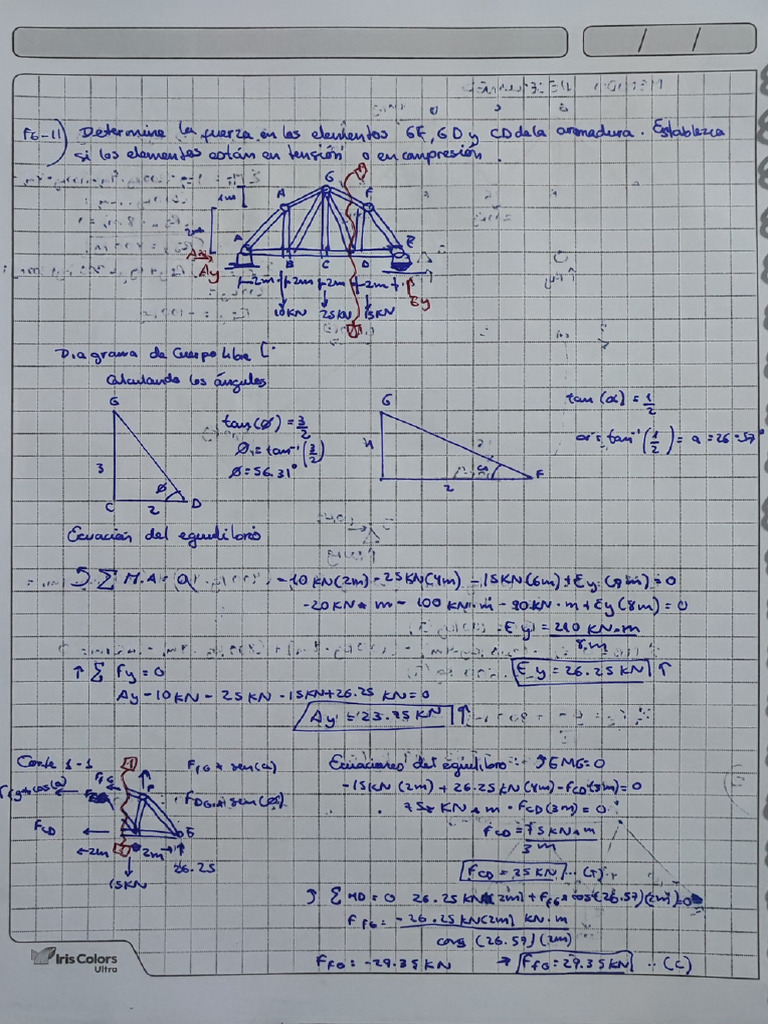 F6-11) Determine la fuerza en los elementos GF, GD y CD de la armadura. Establezca
si los elementos están en tensión o en compresión.
G
1m
F
2m
A
E
Ax
Ay
B C D
2m 2m 2m 2m
Ey
10KN 25KN 15KN
Diagrama de Cuerpo libre
Calculando los ángulos
G
3
C 2 D
ø
tan(ø) = 3/2
ø = tan⁻¹(3/2)
ø = 56.31°
G
2
F
tan(α) = 1/2
α = tan⁻¹(1/2) = α = 26.57°
Ecuación del equilibrio
∑ M.A = 0 -10 KN(2m) - 25KN(4m) - 15KN(6m) + Ey(8m) = 0
-20KN * m - 100 KN·m - 90KN·m + Ey(8m) = 0
Ey = 210 KN·m / 8m
E_y = 26.25 KN ↑
↑ ∑ Fy = 0
Ay - 10KN - 25KN - 15KN + 26.25 KN = 0
Ay = 23.75 KN ↑
Corte 1-1
FFG * sen(α)
FFG * cos(α)
FDG * sen(ø)
F
FCD
E
2m 2m
26.25
15KN
Ecuaciones del equilibrio ∑MG=0
-15KN (2m) + 26.25 KN(4m) - FCD(3m) = 0
75 KN * m - FCD(3m) = 0
FCD = 75KN*m / 3m
FCD = 25 KN ... (T)
∑ MD = 0 26.25 KN(2m) + FFG * cos(26.57)(2m) = 0
FFG = -26.25 KN(2m) KN·m / cos (26.57)(2m)
FFG = -29.35 KN → FFG = 29.35 KN ... (C)
Iris Colors
Ultra